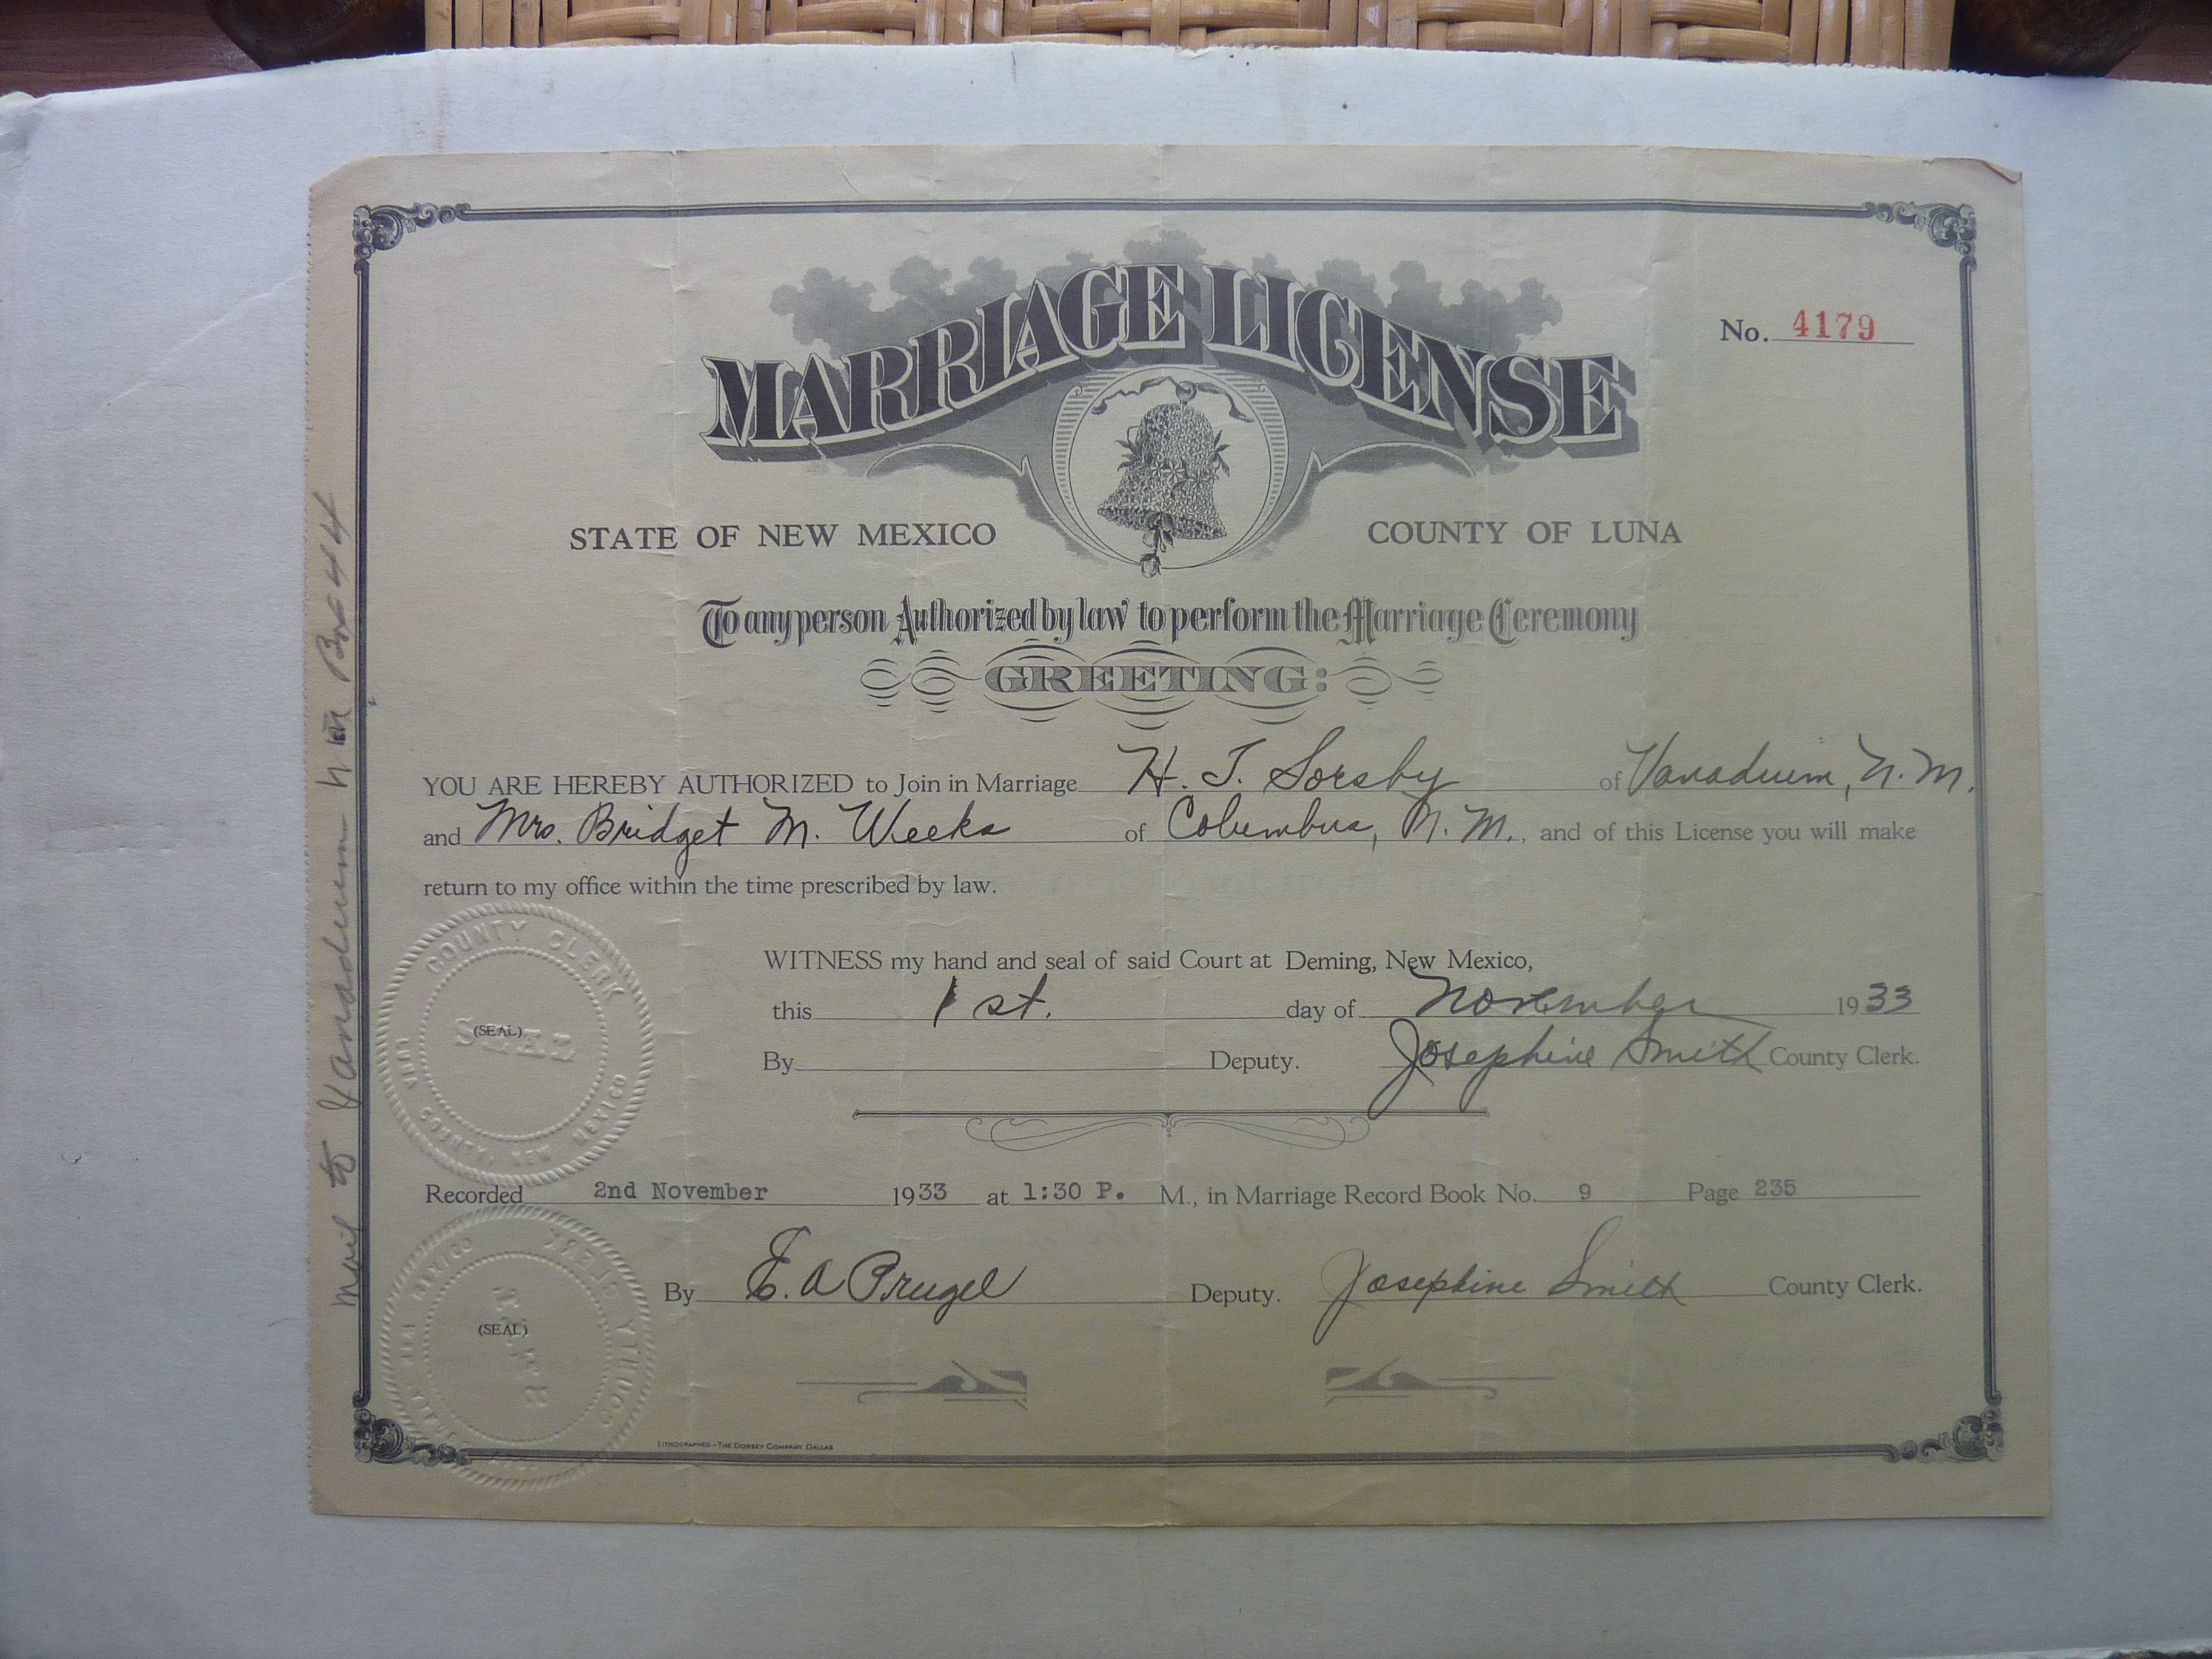 MARRIAGE LICENSE
No. 4179
STATE OF NEW MEXICO COUNTY OF LUNA
To any person Authorized by law to perform the Marriage Ceremony
GREETING:
YOU ARE HEREBY AUTHORIZED to Join in Marriage H. T. Sorsby of Vanadium, N.M.
and Mrs. Bridget M. Weeks of Columbus, N.M., and of this License you will make
return to my office within the time prescribed by law.
COUNTY CLERK
SEAL
(SEAL)
LUNA COUNTY, NEW MEXICO
WITNESS my hand and seal of said Court at Deming, New Mexico,
this 1st. day of November 1933
By Deputy. Josephine Smith County Clerk.
Recorded 2nd November 1933 at 1:30 P. M., in Marriage Record Book No. 9 Page 235
By E. A Prugel Deputy. Josephine Smith County Clerk.
COUNTY CLERK
(SEAL)
MEXICO
LITHOGRAPHED-THE DORSEY COMPANY DALLAS
Mail to Vanadium N M Box 44